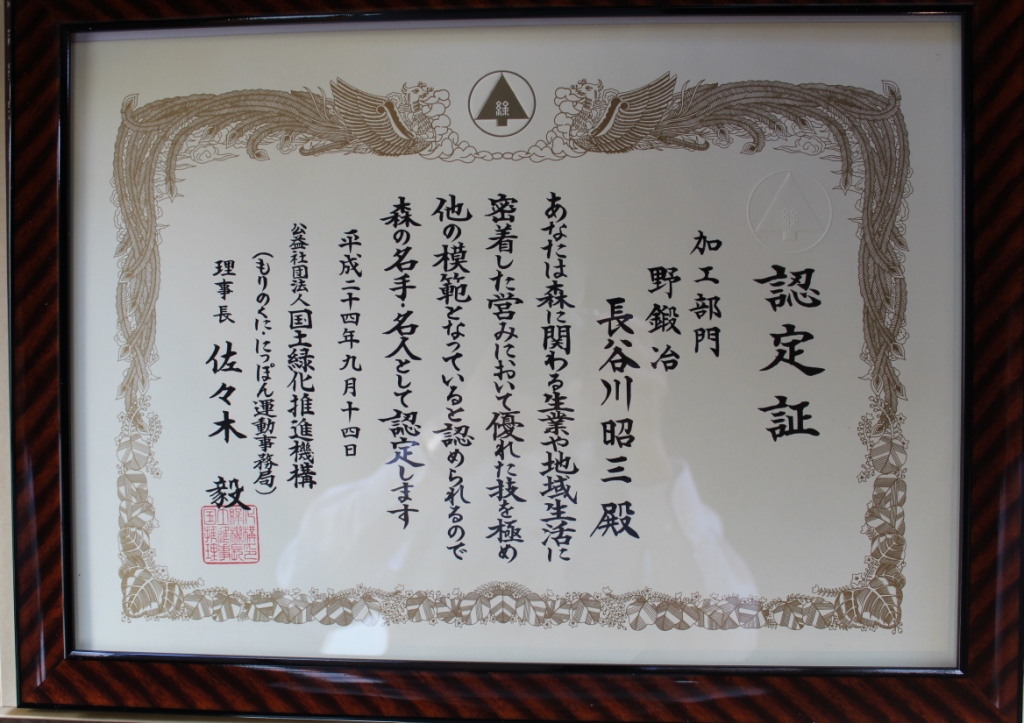 緑
認定証
加工部門
野鍛冶
長谷川昭三殿
あなたは森に関わる生業や地域生活に
密着した営みにおいて優れた技を極め
他の模範となっていると認められるので
森の名手・名人として認定します
平成二十四年九月十四日
公益社団法人国土緑化推進機構
(もりのくに・にっぽん運動事務局)
理事長 佐々木 毅